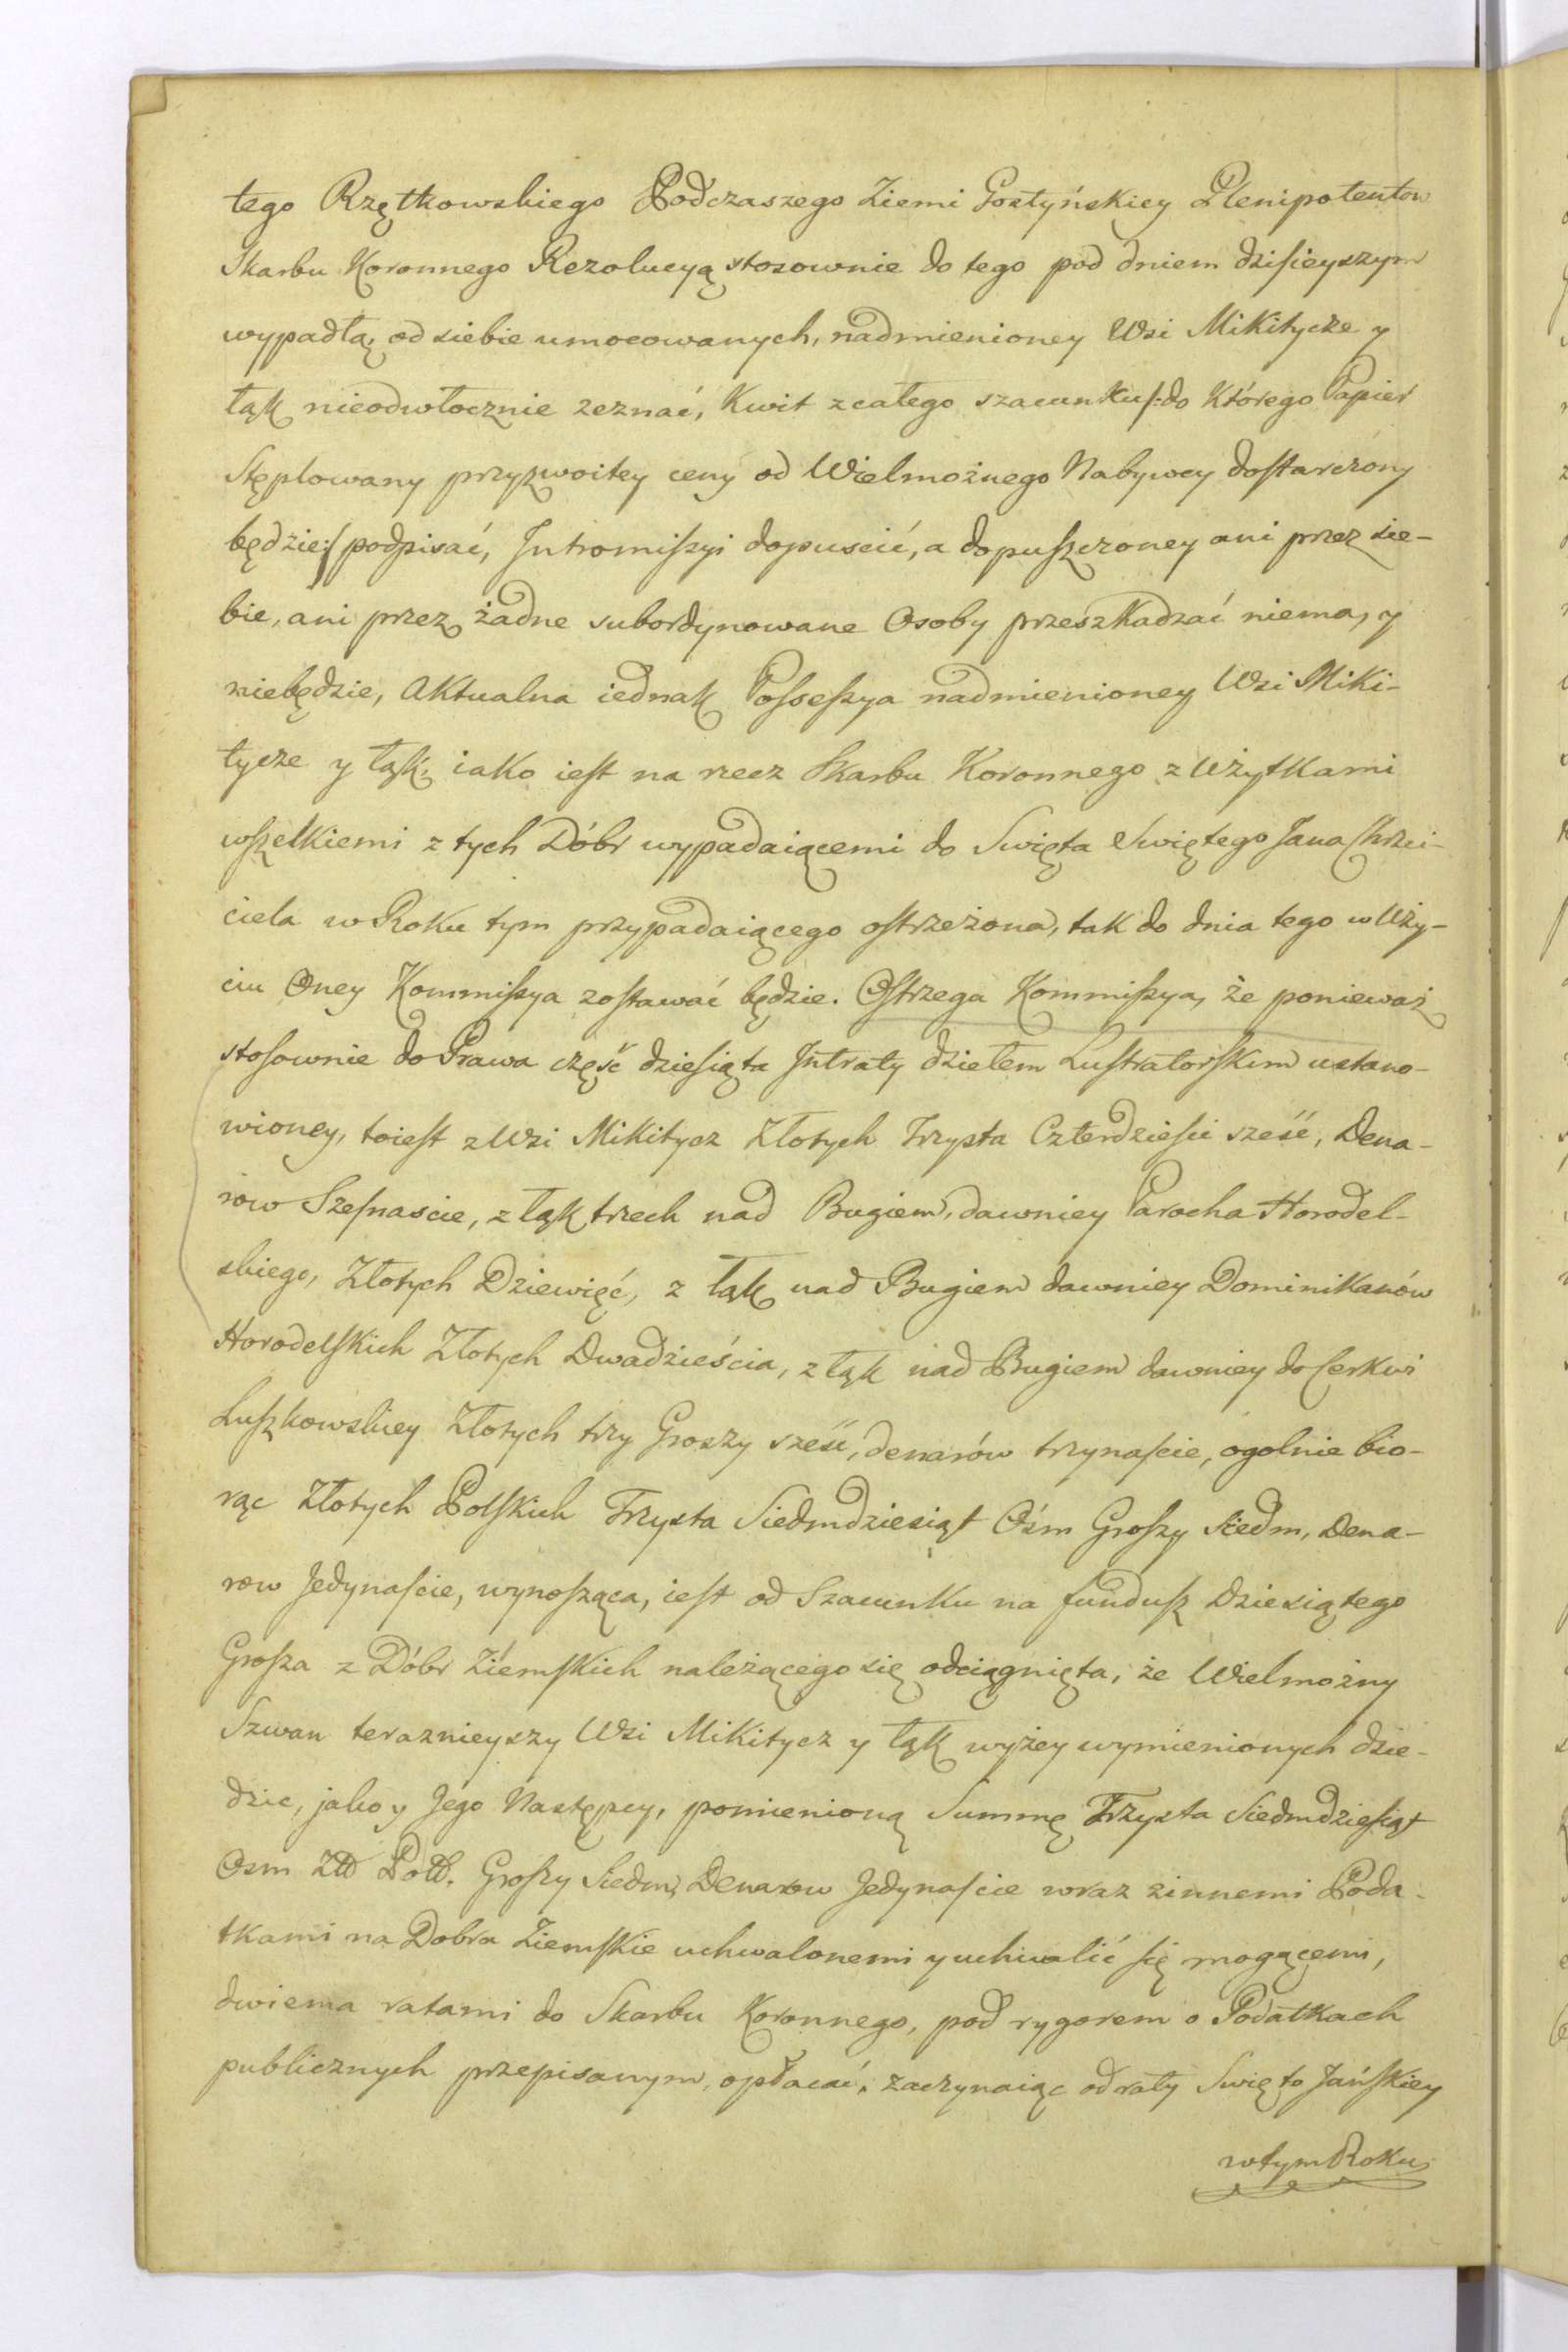 tego Rzętkowskiego Podczaszego Ziemi Gostyńskiey Plenipotentow
Skarbu Koronnego Rezolucyą stosownie do tego pod dniem dzisieyszym
wypadłą, od siebie umocowanych, nadmienioney Wsi Mikitycze y
łąk nieodwłocznie zeznać, Kwit z całego szacunku /:do Którego Papier
Stęplowany przyzwoitey ceny od Wielmożnego Nabywcy dostarczony
będzie:/ podpisać, Intromissyi dopuscić, a dopuszczoney ani przez sie-
bie, ani przez żadne subordynowane Osoby przeszkadzać niema, y
niebędzie, Aktualna iednak Possessya nadmienioney Wsi Miki-
tycze y łąk, iako iest na rzecz Skarbu Koronnego z Użytkami
wszelkiemi z tych Dóbr wypadaiącemi do Swięta Swiętego Jana Chrzci-
ciela w Roku tym przypadaiącego ostrzeżona, tak do dnia tego w Uży-
ciu Oney Kommissya zostawać będzie. Ostrzega Kommissya, że ponieważ
stosownie do Prawa część dziesiąta Intraty dziełem Lustratorskim ustano-
wioney, toiest z Wsi Mikitycz Złotych Trzysta Czterdzieści sześć, Dena-
row Szesnascie, z łąk trzech nad Bugiem, dawniey Parocha Horodel-
skiego, Złotych Dziewięć, z łąk nad Bugiem dawniey Dominikanów
Horodelskich Złotych Dwadzieścia, z łąk nad Bugiem dawniey do Cerkwi
Luszkowskiey Złotych trzy Groszy sześć, denarów trzynaście, ogolnie bio-
rąc Złotych Polskich Trzysta Siedmdziesiąt Ośm Groszy Siedm, Dena-
row Jedynaście, wynosząca, iest od Szacunku na fundusz Dziesiątego
Grosza z Dóbr Ziemskich należącego się odciągnięta, że Wielmożny
Szwan teraznieyszy Wsi Mikitycz y łąk wyżey wymienionych dzie-
dzic, jako y Jego Następcy, pomienioną Summę Trzysta Siedmdziesiąt
Osm Złł Poll. Groszy Siedm, Denarow Jedynaście wraz z innemi Poda-
tkami na Dobra Ziemskie uchwalonemi y uchwalić się mogącemi,
dwiema ratami do Skarbu Koronnego, pod rygorem o Podatkach
publicznych przepisanym, opłacać, zaczynaiąc od raty Swięto Jańskiey
w tym Roku